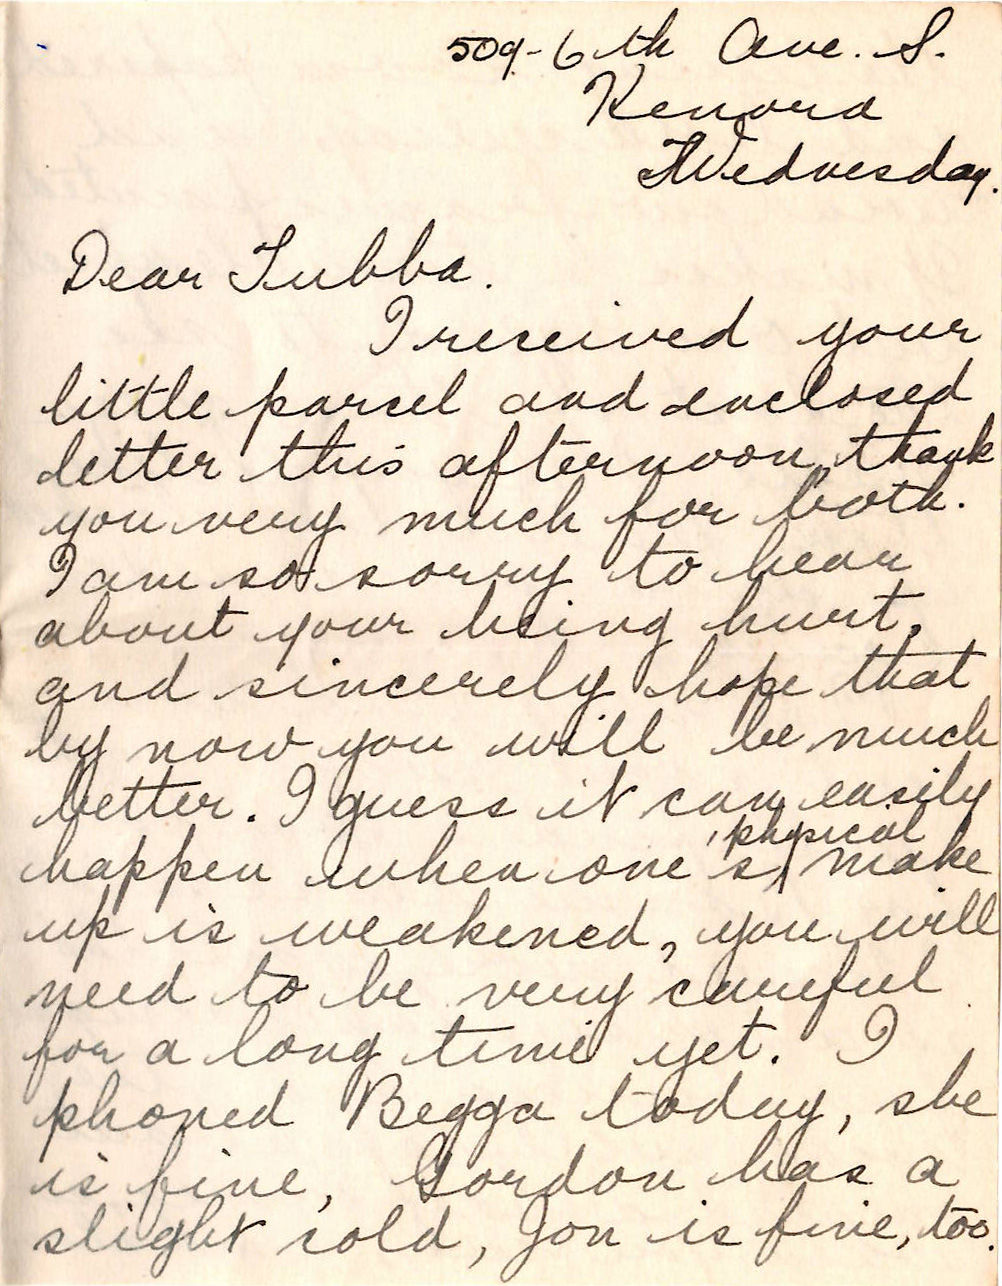 509-6th Ave. S.
Kenora
Wednesday.
Dear Tubba.
I received your
little parcel and enclosed
letter this afternoon, thank
you very much for both.
I am so sorry to hear
about your being hurt,
and sincerely hope that
by now you will be much
better. I guess it can easily
physical
happen when one's, make
up is weakened, you will
need to be very careful
for a long time yet. I
phoned Begga today, she
is fine, Gordon has a
slight cold, Jon is fine, too.